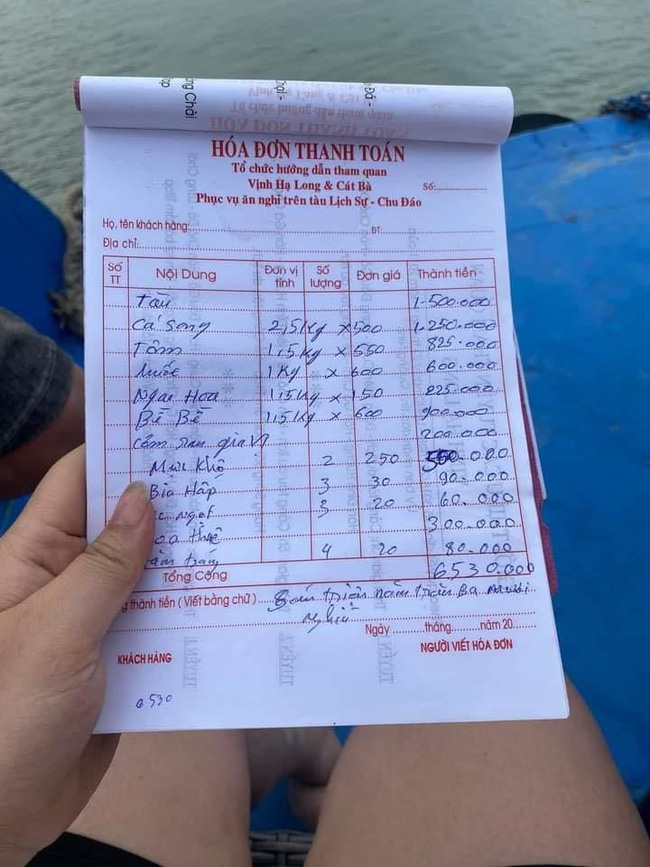 HÓA ĐƠN THANH TOÁN
Tổ chức hướng dẫn tham quan
Vịnh Hạ Long & Cát Bà
Số:
Phục vụ ăn nghỉ trên tàu Lịch Sự - Chu Đáo
Họ, tên khách hàng: ĐT:
Địa chỉ:
Số TT Nội Dung Đơn vị tính Số lượng Đơn giá Thành tiền
Tàu 1.500.000
Cá Song 2,5 Kg x 500 1.250.000
Tôm 1,5 Kg x 550 825.000
1 Kg x 600 600.000
Ngao Hoa 1,5 Kg x 150 225.000
Bề Bề 1,5 Kg x 600 900.000
Cơm rau gia vị 200.000
Mực Khô 2 250 500.000
Bia Hấp 3 30 90.000
ngọt 3 20 60.000
300.000
trắng 4 20 80.000
Tổng Cộng 6530.000
thành tiền (Viết bằng chữ) Sáu triệu năm trăm ba mươi
nghìn
Ngày tháng năm 20
KHÁCH HÀNG NGƯỜI VIẾT HÓA ĐƠN